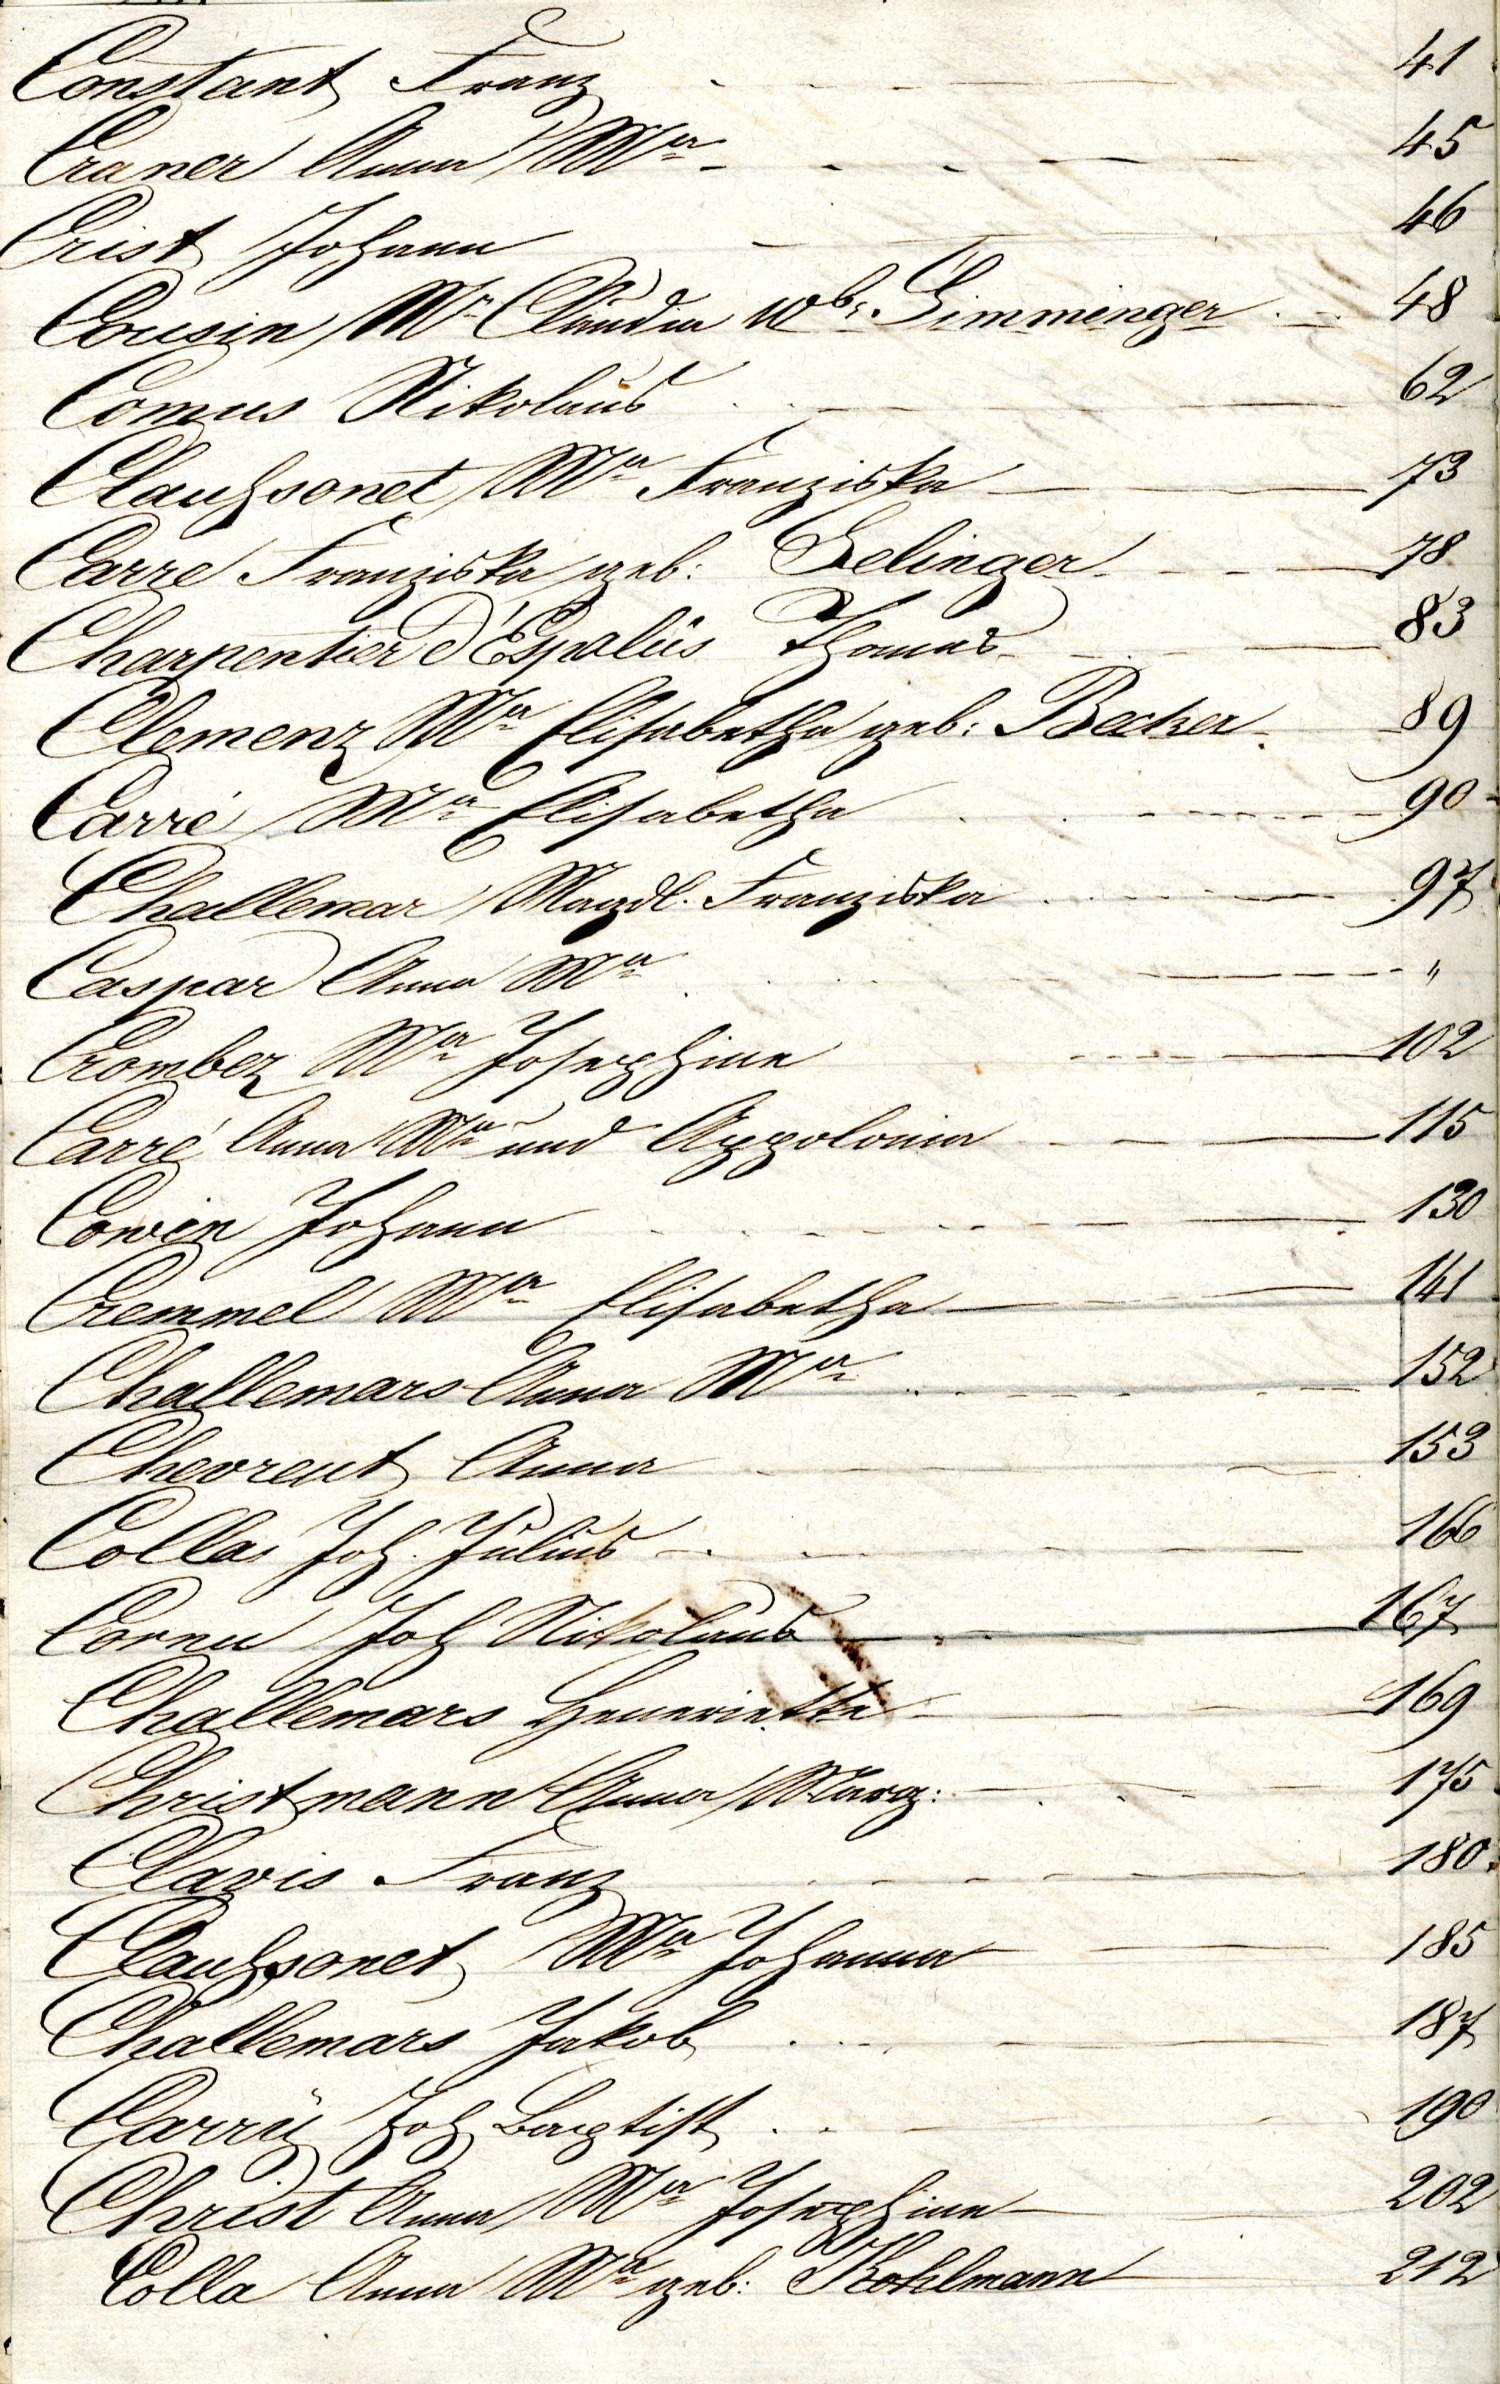 Constant Franz 41
Craner Anna Ma 45
Crist Johann 46
Cousin Mr Claudin wbr. Simminger 48
Comus Nikolaus 62
Clauhsonet Ma Franziska 73
Carre Franziska geb: Selinger 78
Charpentier d'Espaliis Thomas 83
Clemenz Ma Elisabetha geb: Becker 89
Carré Ma Elisabetha 90
Challemar Magdl. Franziska 97
Caspar Anna Ma "
Crombez Ma Josephine 102
Carré Anna Ma und Appolonia 115
Cowin Johann 130
Cremmel Ma Elisabetha 141
Challemars Anna Ma 152
Chevreut Anna 153
Collas Joh. Julius 166
Cornu Joh Nikolaus 167
Challemars Henneriette 169
Christmann Anna Marg: 175
Clavis Franz 180
Clauhsonet Ma Johanna 185
Challemars Jakob 187
Carrü Joh Baptist 190
Christ Anna Ma Josephine 202
Colla Anna Ma geb: Kohlmann 212